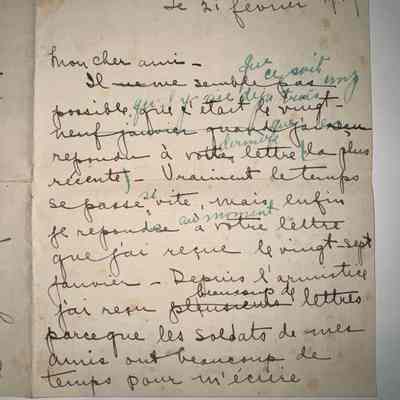 le 21 février
Mon cher ami –
Il ne me semble pas
que ce soit
possible, que c'était le vingt-
qu'il y ait déjà trois
neuf janvier quand j'ai
répondu à votre lettre la plus
dernière
récente – Vraiment le temps
se passe vite, mais enfin
je réponds à votre lettre
au moment
que j'ai reçue le vingt-sept
janvier – Depuis l'armistice
beaucoup de
j'ai reçu plusieurs lettres
parceque les soldats de mes
amis ont beaucoup de
temps pour m'écrire